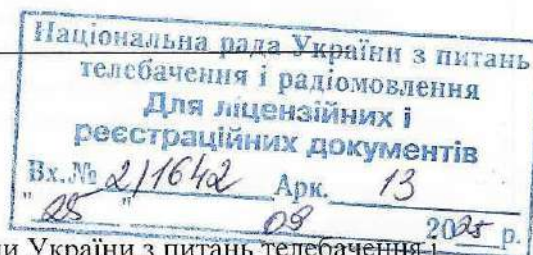 Національна рада України з питань
телебачення і радіомовлення
Для ліцензійних і
реєстраційних документів
Вх.№ 2/1642 Арк. 13
"25" 09 2025 р.
ди України з питань телебачення і